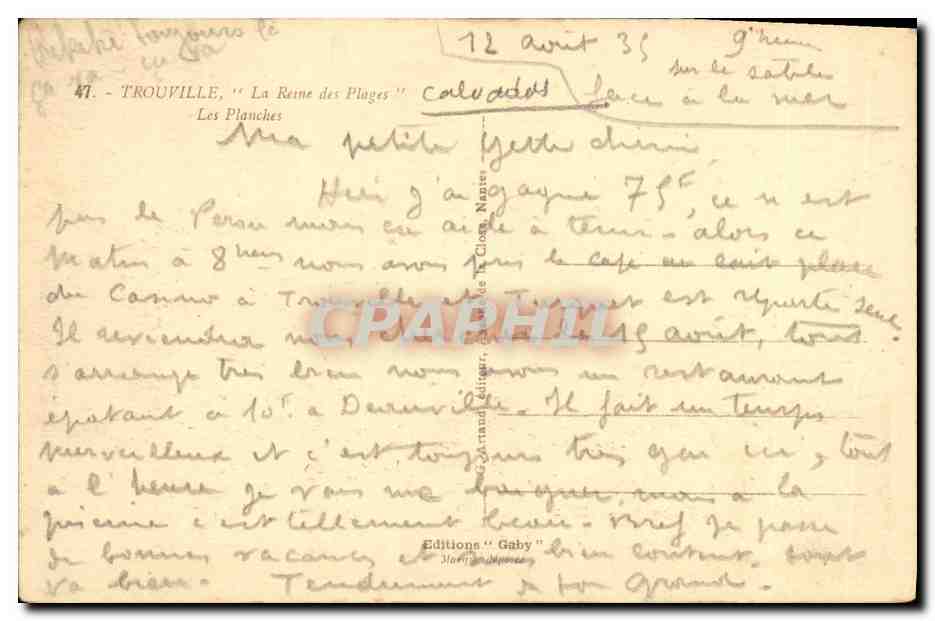 toujours là
ça va
12 août 35 9 heures
sur le sable
face à la mer
47. - TROUVILLE, " La Reine des Plages " Calvados
Les Planches
Ma petite chérie
Hier j'ai gagné 75F, ce n'est
pas le mais ça aide à tenir - alors ce
matin à 8 heures nous avons pris le café au lait place
du Casino à Trouville et est reparti seul.
Il reviendra le 15 août, tout
s'arrange très bien nous avons un restaurant
épatant à 10F à Deauville. Il fait un temps
merveilleux et c'est toujours très gai ici, tout
à l'heure je vais me baigner, mais à la
piscine c'est tellement beau. Bref je passe
de bonnes vacances et bien content. tout
va bien. Tendrement ton grand.
G. Artaud, éditeur, de la Close, Nantes
Editions " Gaby "
CPAPHIL